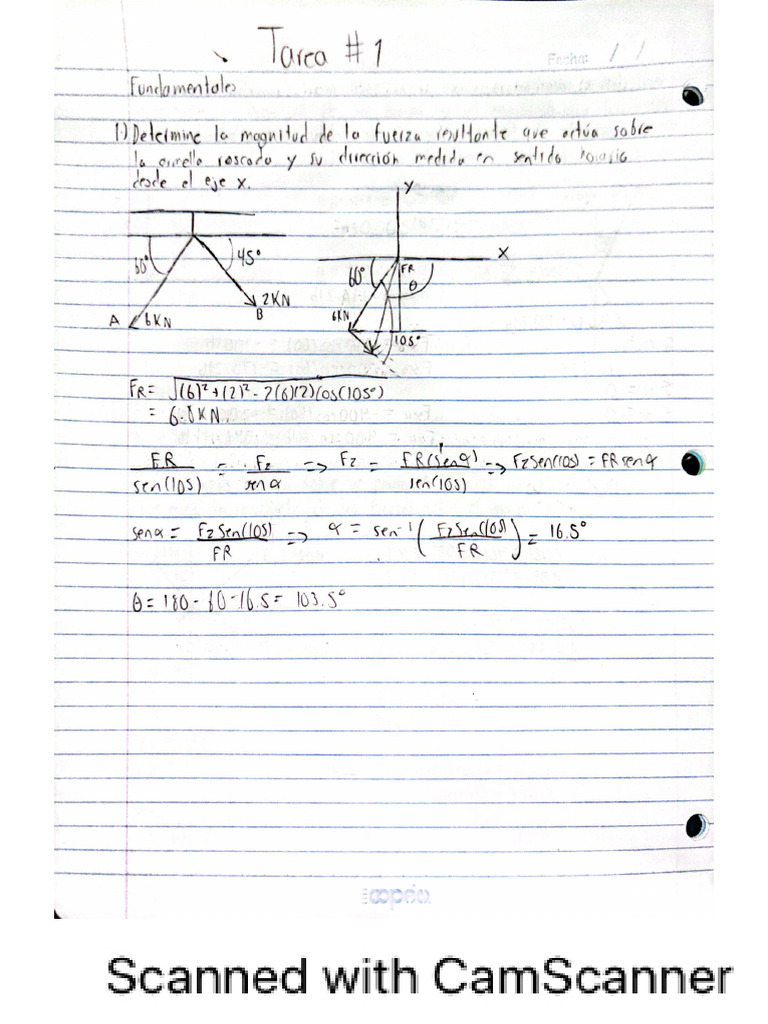 Tarea # 1
Fecha: / /
Fundamentales
1.) Determine la magnitud de la fuerza resultante que actúa sobre
la armella roscada y su dirección medida en sentido horario
desde el eje x.
Y
X
60°
45°
A
6KN
2KN
B
60°
FR
θ
6KN
105°
FR = √(6)²+(2)²-2(6)(2)Cos(105°)
= 6.8KN
FR/sen(105) = F2/senα => F2 = FR(senα)/sen(105) => F2Sen(105) = FRsenα
senα = F2Sen(105)/FR => α = sen⁻¹(F2Sen(105)/FR) = 16.5°
θ = 180-60-16.5 = 103.5°
Scanned with CamScanner